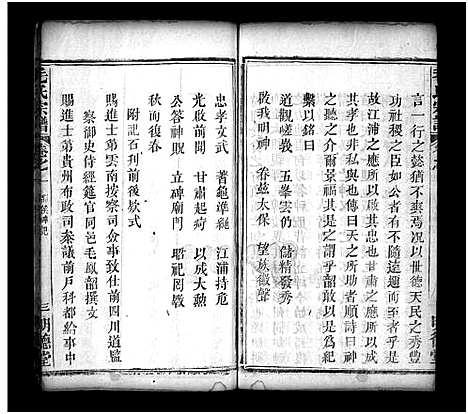 言一行之懿猶不爽焉况以世德天民之秀豐
功社稷之臣如公者有不隨造遇而示應者乎
故江浦之應所以成公之志甘肅之應所以成公
之孝也非私與也傳曰天之所助者順詩曰神
之聽之介爾景福其是之謂乎韶敢以是爲紀
繫以銘曰
道觀嵯義 五峯雲仍 儲精發秀
啟我明神 眷茲太保 望族徽聲
忠孝文武 著龜準繩 江浦持危
光啟前聞 甘肅起疴 以成大勳
公答神貺 立碑廟門 昭祀罔斁
秋而復春
附記石刊前後欵式
賜進士第雲南按察司僉事致仕前四川道監
察御史侍經筵官同邑毛鳳韶撰文
賜進士第貴州布政司叅議前戶科都給事中
毛氏宗譜
三 明德堂